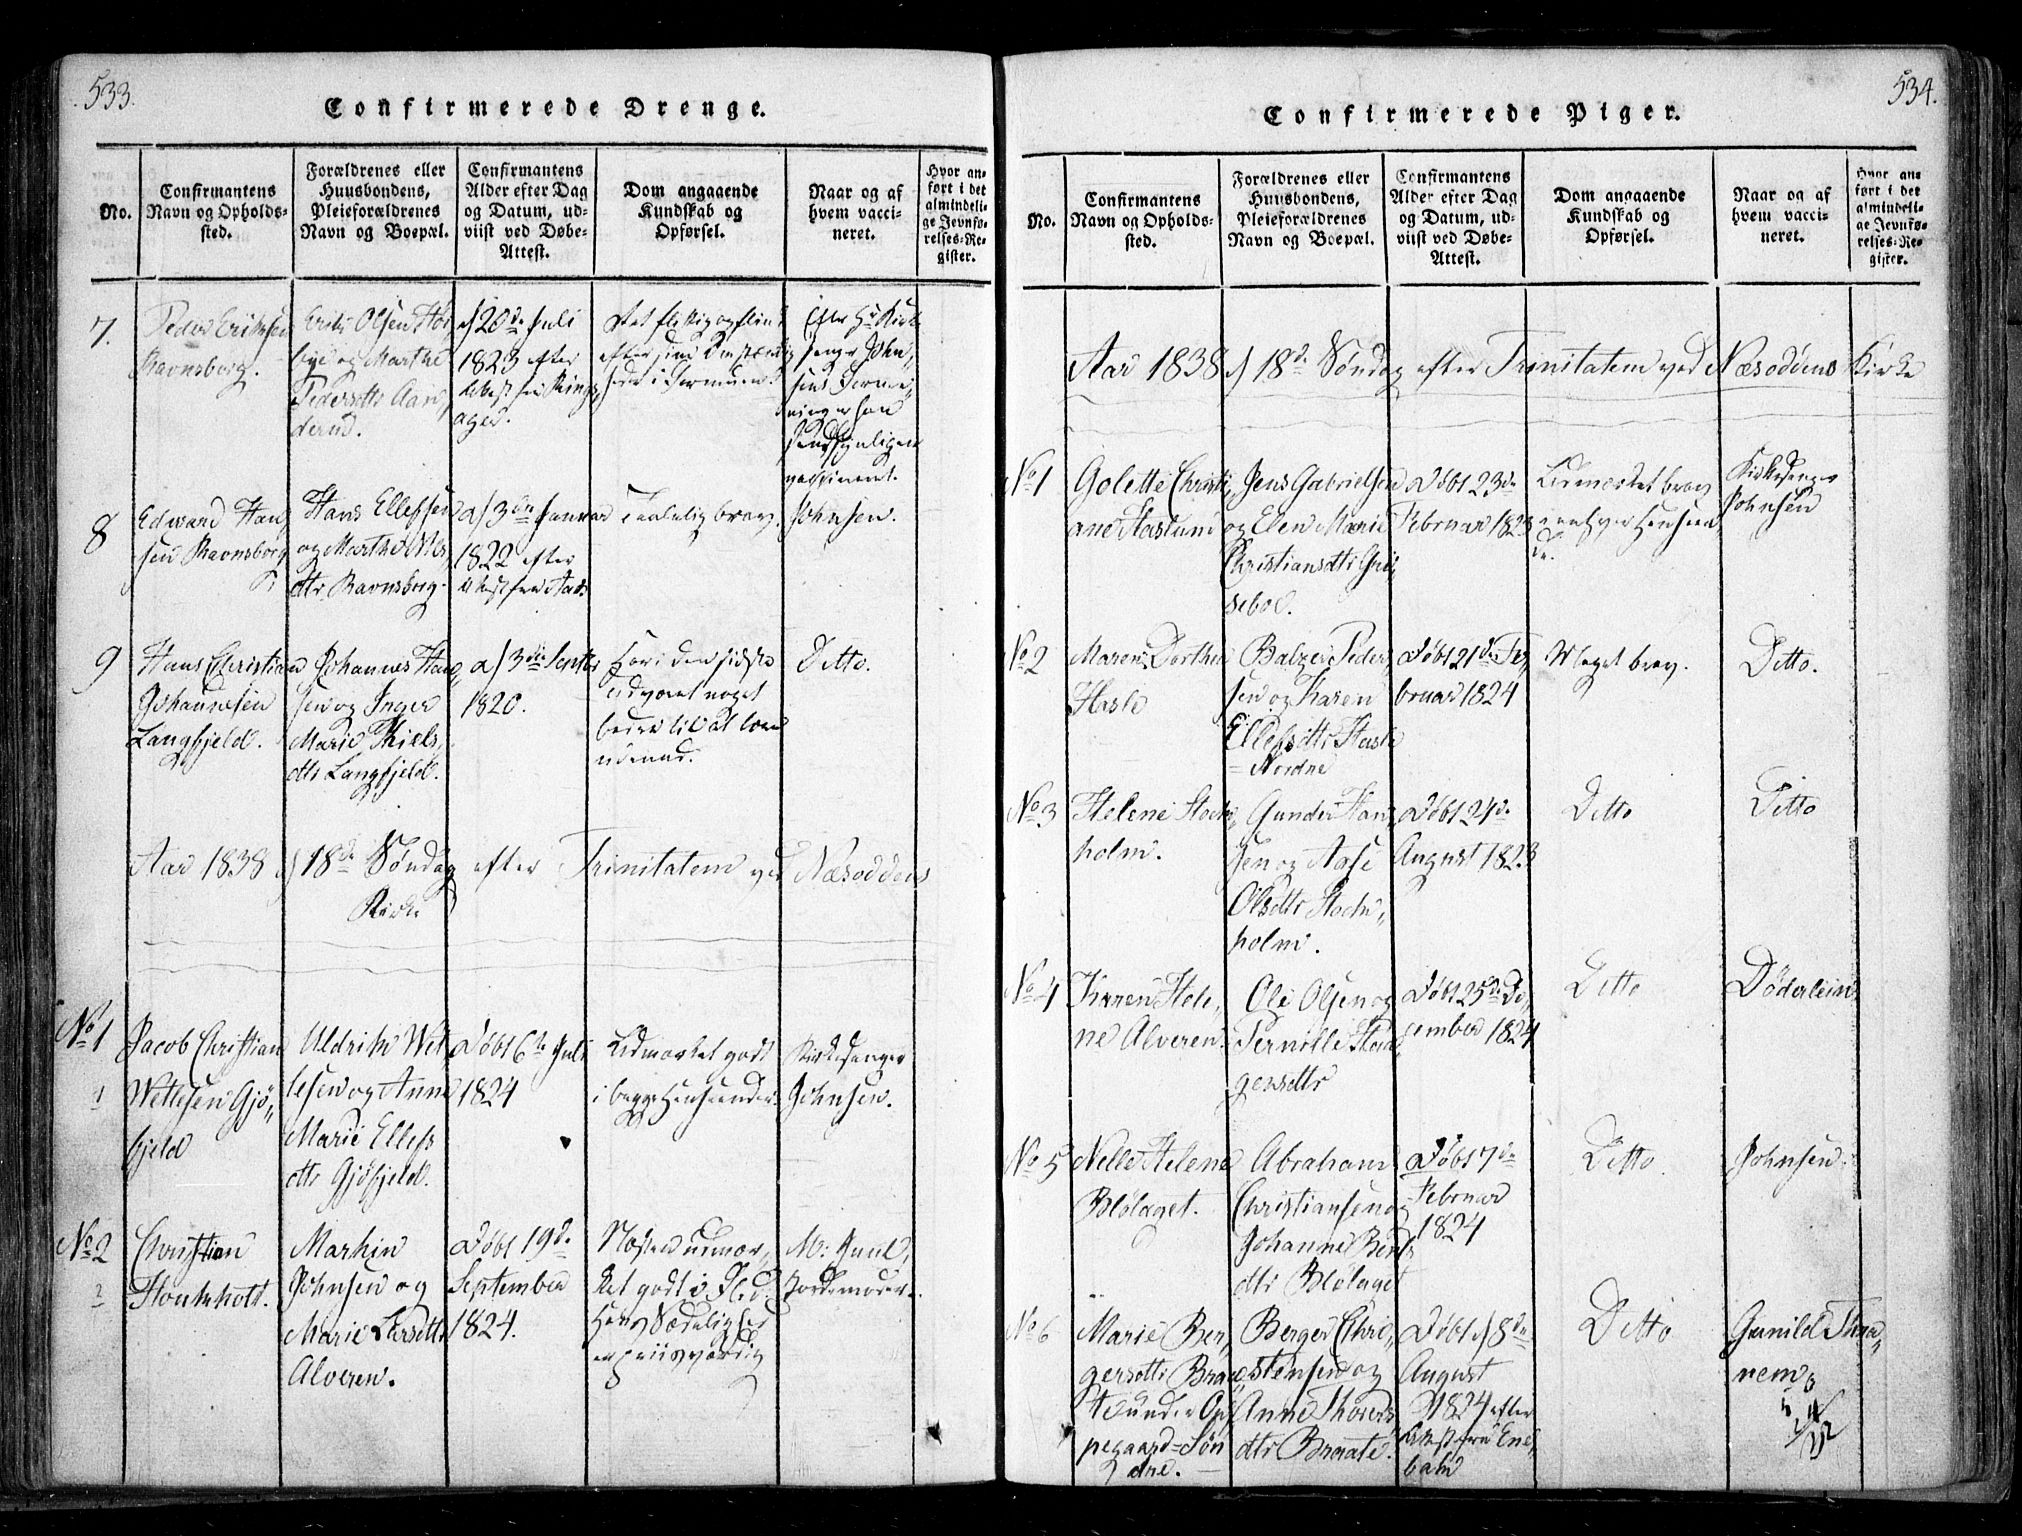 533.
Confirmerede Drenge.
No.
Confirmantens
Navn og Opholds-
sted.
Forældrenes eller
Huusbondens,
Pleieforældrenes
Navn og Boepæl.
Confirmantens
Alder efter Dag
og Datum, ud-
viist ved Døbe-
Attest.
Dom angaaende
Kundskab og
Opførsel.
Naar og af
hvem vacci-
neret.
Hvor an-
ført i det
almindeli-
ge Jevnfø-
relses-Re-
gister.
7.
Peder Eriksen
Ravnsborg.
Erik Olsen
bye og Marthe
Pedersdtr
derud.
20de Juli
1823 efter
Attest fra
ager.
8
Edward Han
sen Ravnsborg
Hans Ellefsen
og Marthe Niels
dtr. Ravnsborg.
3die Januar
1822 efter
Attest fra
brav.
Johnsen.
9
Hans Christian
Johannesen
Langfjeld.
Johannes Han
sen og Inger
Marie Thiels
dtr Langfjeld.
3die Septbr
1820.
Har i den sidste
noget
Ditto.
Aar 1838 18de Søndag efter Trinitatem ved Næsoddens
Kirke
No 1
Jacob Christian
Wettesen Gjø„
fjeld
Uldrik Wet
lesen og Anne
Marie Ellefs
dtr Gjøfjeld.
Døbt 6te Juli
1824
Udmærket godt
i begge Henseender.
Kirkesanger
Johnsen.
No 2
Christian
Martin
Johnsen og
Marie Larsdtr
Alveren.
Døbt 19de
September
1824.
Næsten udmær„
ket godt i Flid.
Hans Sædelighed
er priisværdig
M: Juul,
Jordemoder.
534.
Confirmerede Piger.
No.
Confirmantens
Navn og Opholds-
sted.
Forældrenes eller
Huusbondens,
Pleieforældrenes
Navn og Boepæl.
Confirmantens
Alder efter Dag
og Datum, ud-
viist ved Døbe-
Attest.
Dom angaaende
Kundskab og
Opførsel.
Naar og af
hvem vacci-
neret.
Hvor an-
ført i det
almindeli-
ge Jevnfø-
relses-Re-
gister.
Aar 1838 18de Søndag efter Trinitatem ved Næsoddens Kirke
No 1
Golette Christi„
ane Haslum
Jens Gabrielsen
og Elen Marie
Christiansdtr
Døbt 23de
Februar 1823
Udmærket brav
i enhver Henseen
de.
Kirkesanger
Johnsen
No 2
Maren Dorthea
Hasle
Balzer Peder„
sen og Karen
Ellefsdtr Hasle
Nordre
Døbt 21de Fe„
bruar 1824
Meget brav.
Ditto.
No 3
Helene Stock„
holm.
Gunder Han„
sen og Aase
Olsdtr Stock„
holm.
Døbt 24de
August 1823
Ditto
Ditto
No 4
Karen Hele„
ne Alveren.
Ole Olsen og
Pernille
gensdtr
Døbt 25de De„
cember 1824
Ditto
Døderlein
No 5
Nelle Helene
Blølaget.
Abraham
Christiansen og
Johanne Berts
dtr Blølaget
Døbt 7de
Februar
1824
Ditto.
Johnsen.
No 6
Marie Ber„
gersdtr Braa„
te under Op„
pegaard=Søn
dre.
Berger Chri„
stensen og
Anne Thores
dtr Braate.
Døbt 8de
August
1824 efter
Attest fra Ene„
bak
Ditto
Gunild Thra„
nem